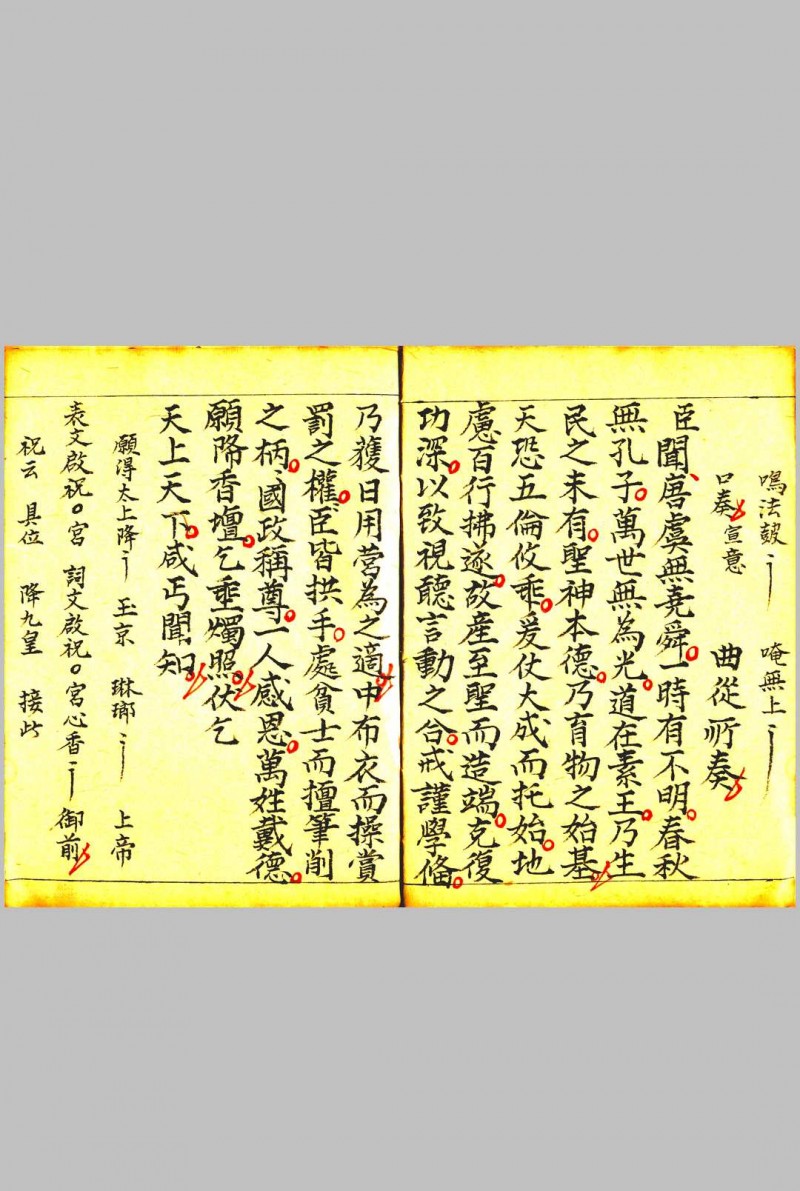 鳴法鼓 唵無上
口奏 宣意 曲從所奏
臣聞唐虞無堯舜。一時有不明。春秋
無孔子。萬世無為光。道在素王。乃生
民之未有。聖神本德。乃育物之始基
天恐五倫攸乖。爰仗大成而托始。地
慮百行拂逐。故產至聖而造端。克復
功深。以致視聽言動之合。戒謹學俻。
乃獲日用营為之適中布衣而操賞
罰之權。臣皆拱手。處貧士而擅筆削
之柄。國政稱尊。一人感恩。萬姓戴德。
願降香壇。乞垂燭照。伏乞
天上天下。咸丐聞知
願得太上降 玉京 琳瑯 上帝
表文啟祝。宮 詞文啟祝。宮心香 御前
祝云 具位 降九皇 接此